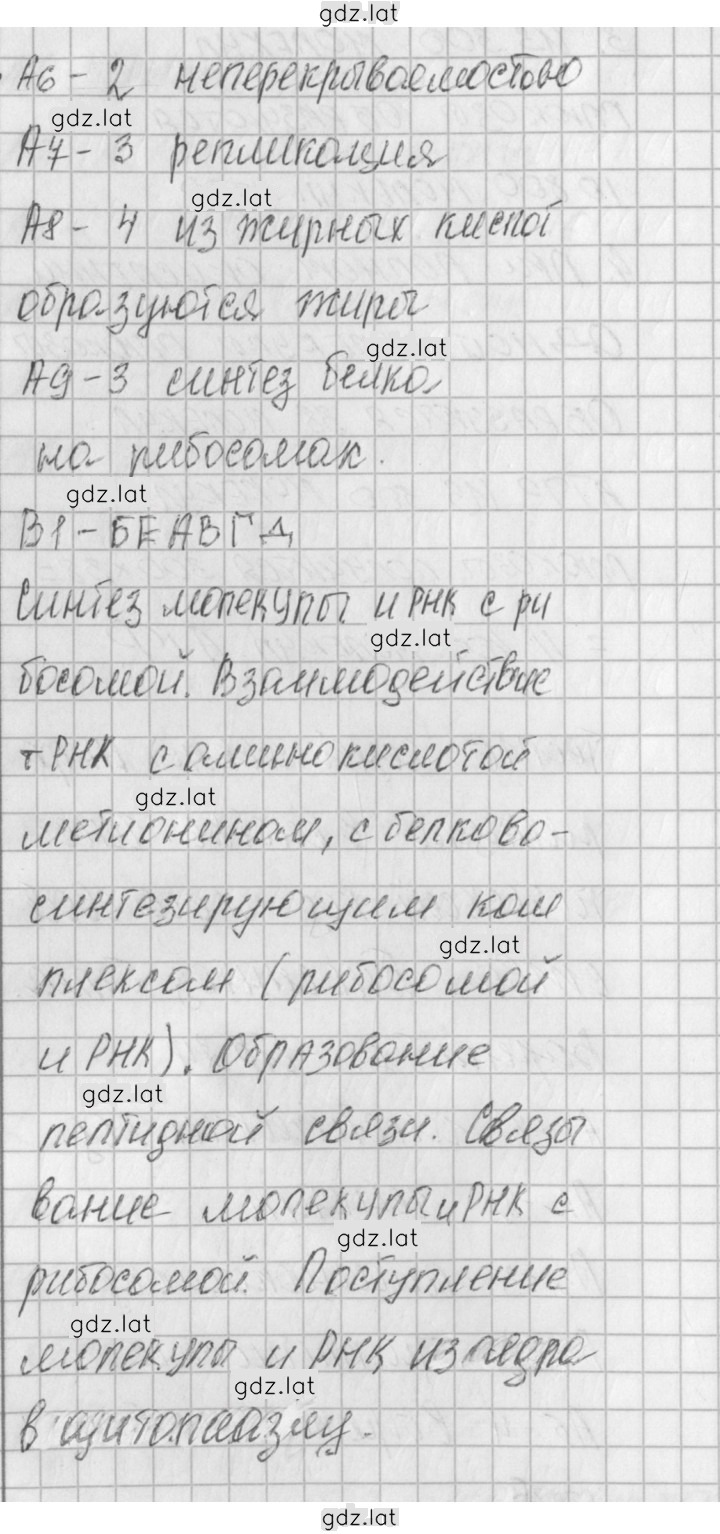 gdz.lat
А6 - 2 неперекрываемостью
gdz.lat
А7 - 3 репликация
gdz.lat
А8 - 4 из жирных кислот
образуются жиры
gdz.lat
А9 - 3 синтез белка
на рибосомах.
gdz.lat
В1 - БЕАВГД
Синтез молекулы и РНК с ри
gdz.lat
босомой. Взаимодействие
т РНК с аминокислотой
gdz.lat
метионином, с белково-
синтезирующим ком
gdz.lat
плексом (рибосомой
и РНК). Образование
gdz.lat
пептидной связи. Связы
вание молекулы и РНК с
gdz.lat
рибосомой. Поступление
gdz.lat
молекулы и РНК из ядра
gdz.lat
в цитоплазму.
gdz.lat